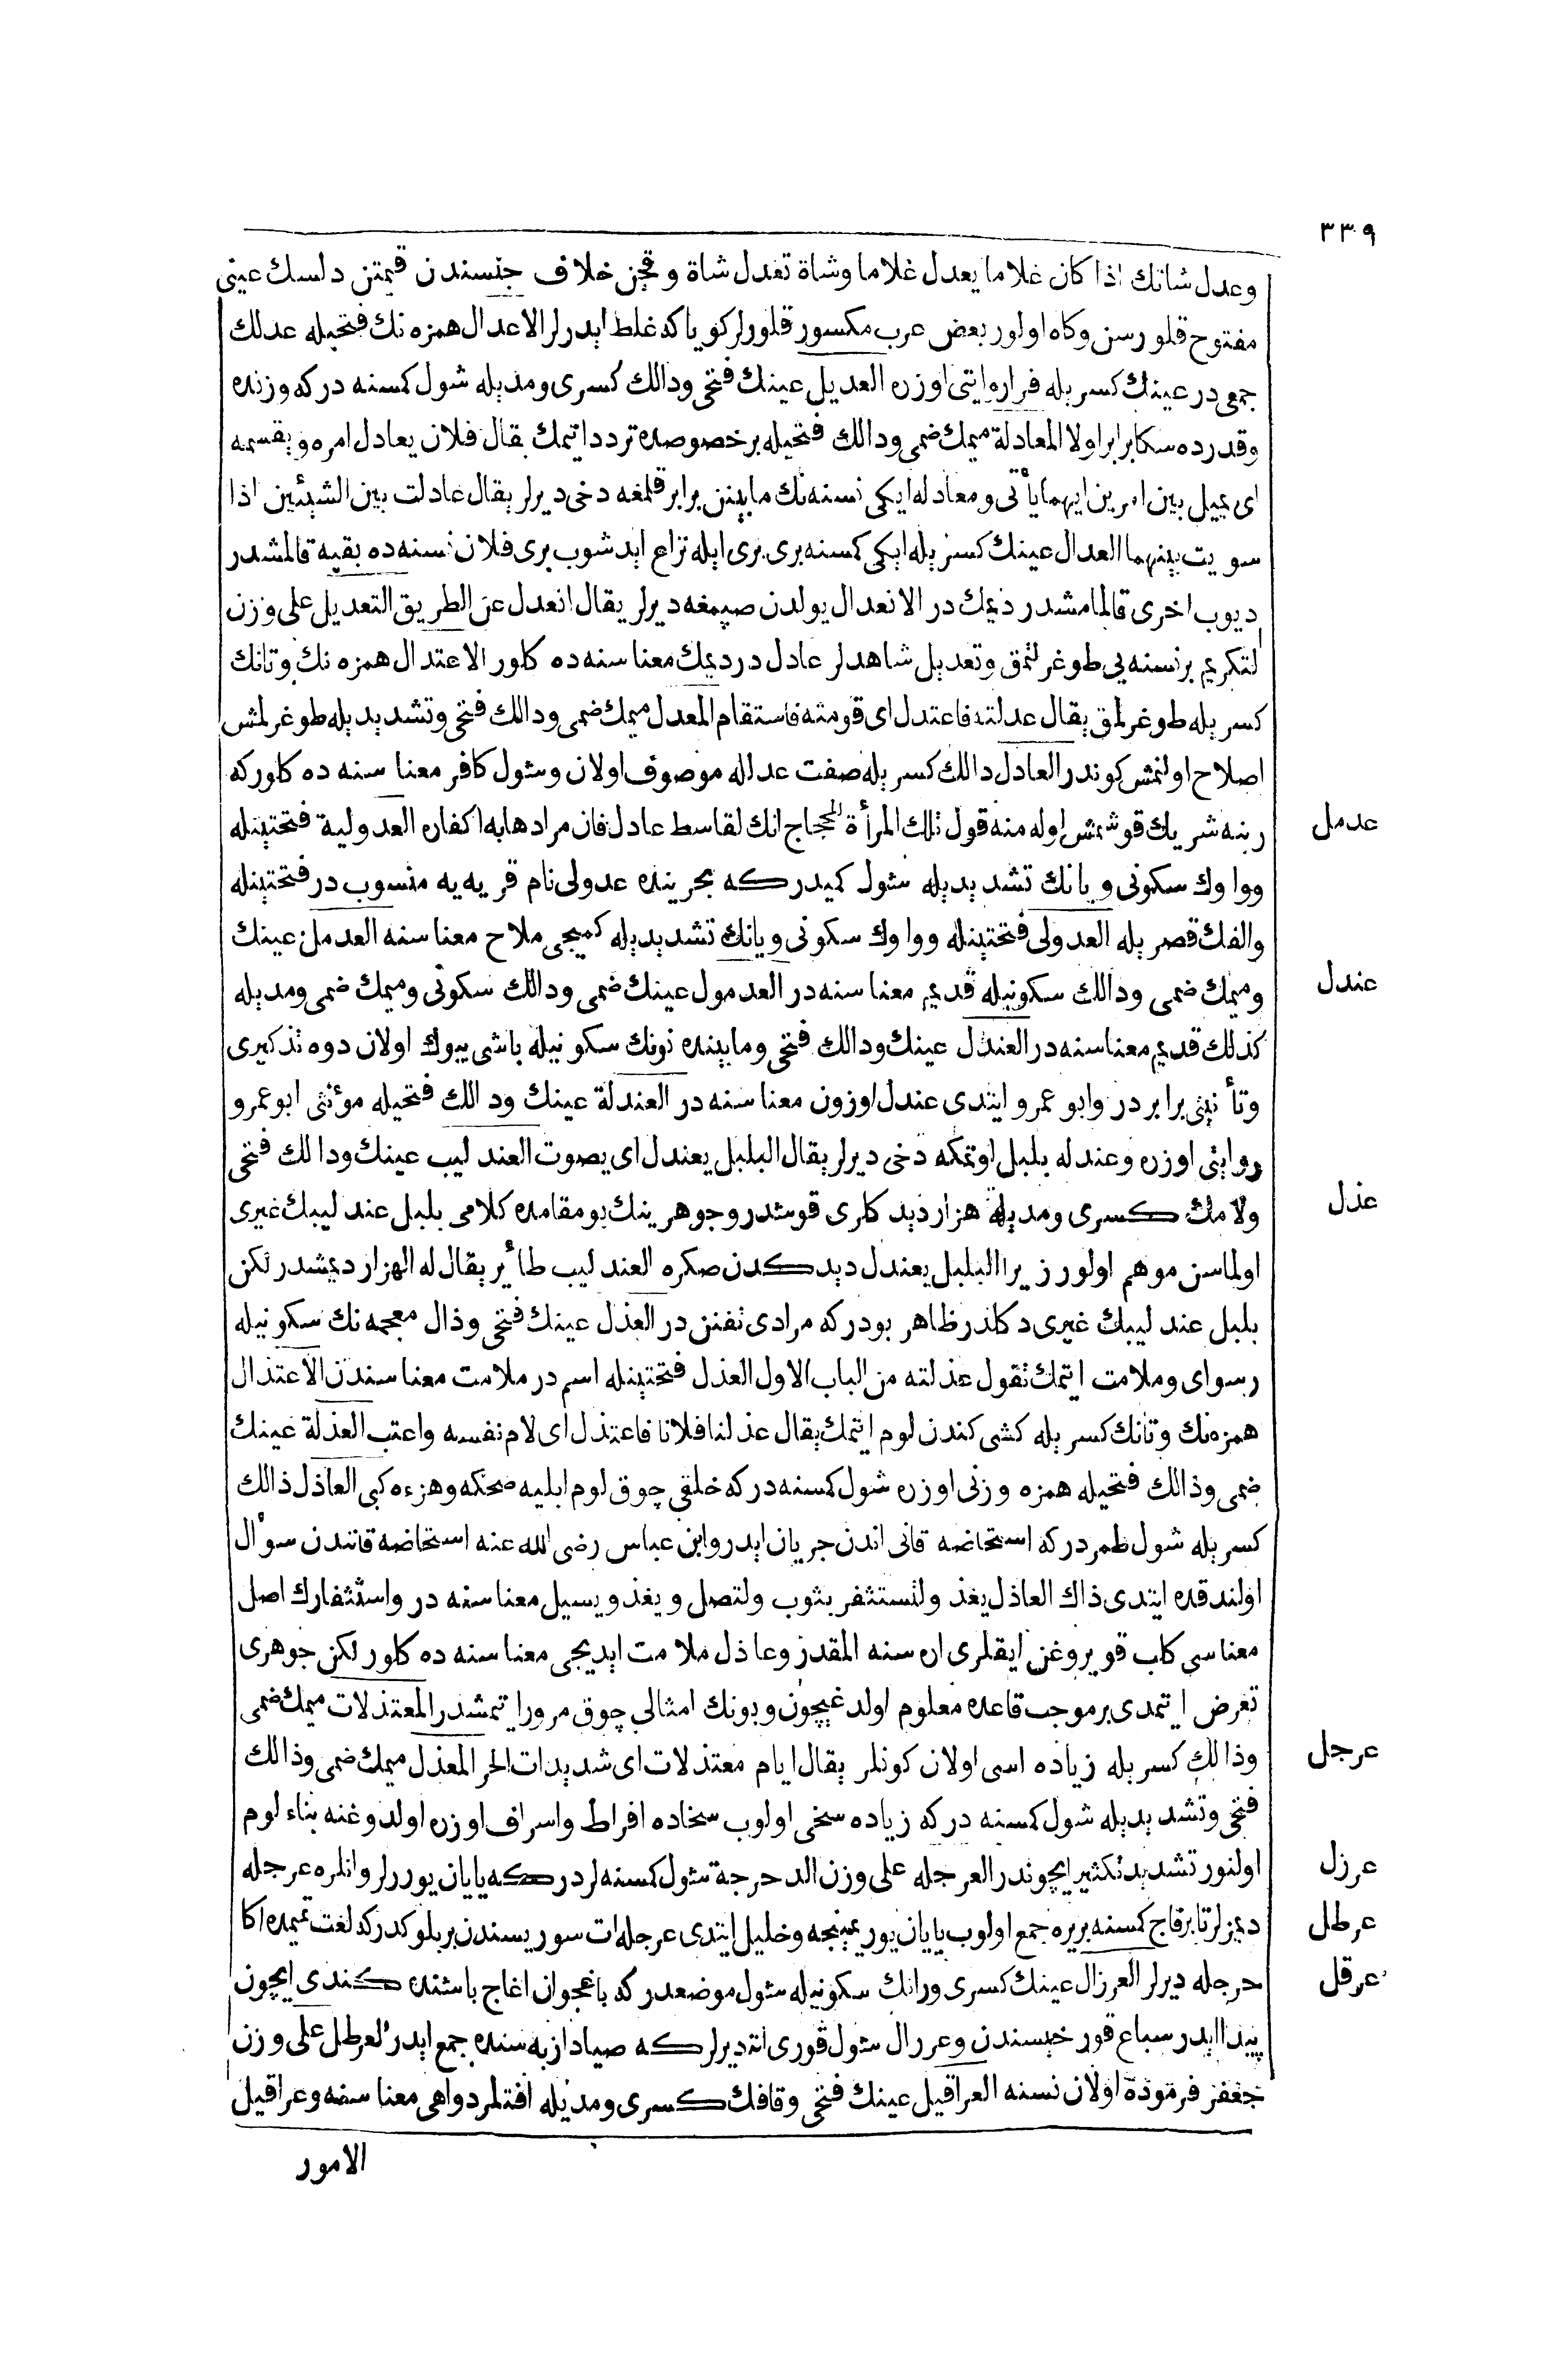 ٣٣٩
وعدل شاتك اذا كان غلاما يعدل غلاما وشاة تعدل شاة وقچن خلاف جنسندن قيمتن دلسك عينى
مفتوح قلورسن وكاه اولور بعض عرب مكسور قلورلر كويا كه غلط ايدرلر الاعدال همزه نك فتحيله عدلك
جمعى در عينك كسريله فرا روايتى اوزره العديل عينك فتحى ودالك كسرى ومديله شول كمسنه در كه وزنده
وقدرده سكا برابر اولا المعادلة ميمك ضمى ودالك فتحيله بر خصوصده تردد ايتمك يقال فلان يعادل امره ويقسمه
اى يميل بين امرين ايهما يأتى ومعادله ايكى نسنه نك مابينن برابر قلمغه دخى ديرلر يقال عادلت بين الشيئين اذا
سويت بينهما العدال عينك كسريله ايكى كمسنه برى برى ايله نزاع ايدشوب برى فلان نسنه ده بقيه قالمشدر
ديوب اخرى قالمامشدر ديمك در الانعدال يولدن صپمغه ديرلر يقال انعدل عن الطريق التعديل على وزن
التكريم بر نسنه يى طوغرلتمق وتعديل شاهدلر عادل در ديمك معناسنه ده كلور الاعتدال همزه نك وتانك
كسريله طوغرلمق يقال عدلته فاعتدل اى قومته فاستقام المعدل ميمك ضمى ودالك فتحى وتشديديله طوغرلمش
اصلاح اولنمش كوندر العادل دالك كسريله صفت عدالله موصوف اولان وشول كافر معناسنه ده كلور كه
ربنه شريك قوشمش اوله منه قول تلك المرأة للحجاج انك لقاسط عادل فان مرادها به اكفاره العدولية فتحتينله
وواوك سكونى ويانك تشديديله شول كميدر كه بحرينده عدولى نام قريه يه منسوب در فتحتينله
والفك قصريله العدولى فتحتينله وواوك سكونى ويانك تشديديله كميجى ملاح معناسنه العدمل عينك
عدمل
وميمك ضمى ودالك سكونيله قديم معناسنه در العدمول عينك ضمى ودالك سكونى وميمك ضمى ومديله
كذلك قديم معناسنه در العندل عينك ودالك فتحى ومابينده نونك سكونيله باشى بيوك اولان دوه تذكيرى
عندل
وتأنيثى برابر در وابو عمرو ايتدى عندل اوزون معناسنه در العندلة عينك ودالك فتحيله مؤنثى ابو عمرو
روايتى اوزره وعندله بلبل اوتمكه دخى ديرلر يقال البلبل يعندل اى يصوت العندليب عينك ودالك فتحى
ولامك كسرى ومديله هزار ديدكلرى قوشدر وجوهرينك بو مقامده كلامى بلبل عندليبك غيرى
اولماسن موهم اولور زيرا البلبل يعندل ديدكدن صكره العندليب طائر يقال له الهزار ديمشدر لكن
بلبل عندليبك غيرى دكلدر ظاهر بودر كه مرادى تفنن در العذل عينك فتحى وذال معجمه نك سكونيله
عذل
رسواى وملامت ايتمك تقول عذلته من الباب الاول العذل فتحتينله اسم در ملامت معناسندن الاعتذال
همزه نك وتانك كسريله كشى كندن لوم ايتمك يقال عذلنا فلانا فاعتذل اى لام نفسه واعتب العذلة عينك
ضمى وذالك فتحيله همزه وزنى اوزره شول كمسنه در كه خلقى چوق لوم ايليه ضحكه وهزءه كبى العاذل ذالك
كسريله شول طمردر كه استحاضه قانى اندن جريان ايدر وابن عباس رضى الله عنه استحاضه قانندن سؤال
اولندقده ايتدى ذاك العاذل يغذ ولتستثفر بثوب ولتصل ويغذ ويسيل معناسنه در واستثفارك اصل
معناسى كلب قويروغن ايقلرى اره سنه المقدر وعاذل ملامت ايديجى معناسنه ده كلور لكن جوهرى
تعرض ايتمدى بر موجب قاعده معلوم اولدغيچون وبونك امثالى چوق مرور ايتمشدر المعتذلات ميمك ضمى
وذالك كسريله زياده اسى اولان كونلر يقال ايام معتذلات اى شديدات الحر المعذل ميمك ضمى وذالك
فتحى وتشديديله شول كمسنه در كه زياده سخى اولوب سخاده افراط واسراف اوزره اولدوغنه بناء لوم
اولنور تشديد تكثير ايچوندر العرجله على وزن الدحرجة شول كمسنه لردر كه يايان يوررلر وانلره عرجله
عرجل
ديمزلر تا بر قاچ كمسنه بر يره جمع اولوب يايان يوريمينجه وخليل ايتدى عرجله ات سوريسندن بر بلوكدر كه لغت تميمده اكا
حرجله ديرلر العرزال عينك كسرى ورانك سكونيله شول موضعدر كه باغجوان اغاج باشنده كندى ايچون
عرزل
پيدا ايدر سباع قورخيسندن وعرزال شول قورى اته ديرلر كه صياد ازبه سنده جمع ايدر العرطل على وزن
عرطل
جعفر فرتوده اولان نسنه العراقيل عينك فتحى وقافك كسرى ومديله افتلر دواهى معناسنه وعراقيل
عرقل
الامور